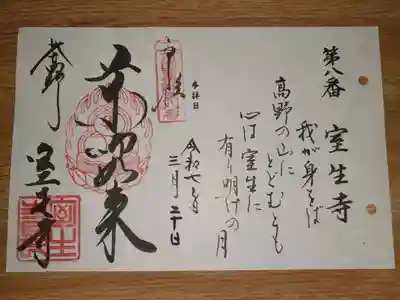 第八番 室生寺
我が身をば
高野の山に
とどむとも
心は室生に
有り明けの月
参拝日
令和七年
三月二十日
薬師如来
室生寺